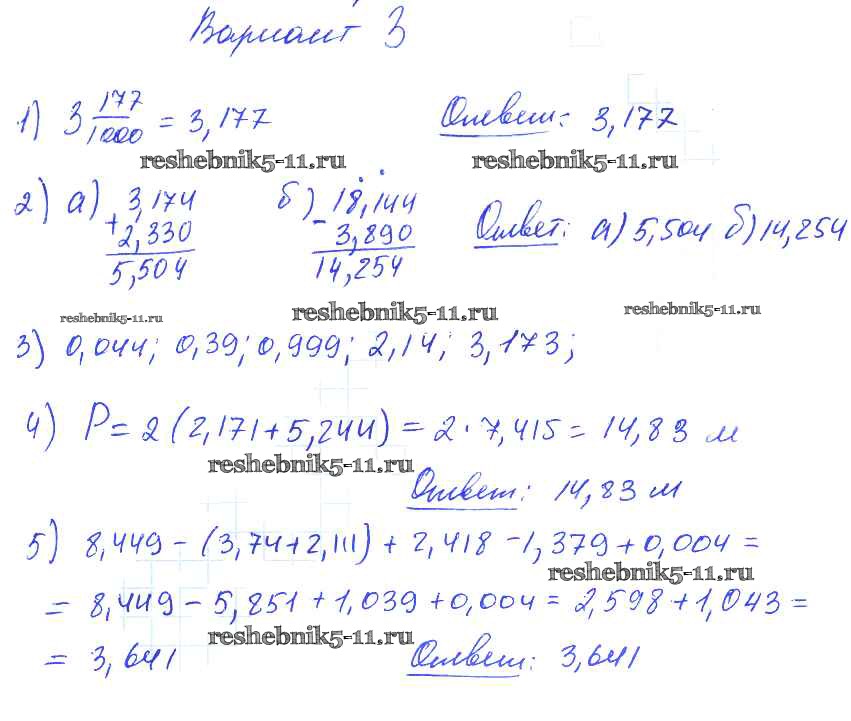 Вариант 3
1) 3 177/1000 = 3,177 Ответ: 3,177
reshebnik5-11.ru reshebnik5-11.ru
2) а) 3,174 б) 18,144
+ 2,330 - 3,890 Ответ: а) 5,504 б) 14,254
5,504 14,254
reshebnik5-11.ru reshebnik5-11.ru reshebnik5-11.ru
3) 0,044; 0,39; 0,999; 2,14; 3,173;
4) P = 2 (2,171 + 5,244) = 2 · 7,415 = 14,83 м
reshebnik5-11.ru
Ответ: 14,83 м
5) 8,449 - (3,74 + 2,111) + 2,418 - 1,379 + 0,004 =
reshebnik5-11.ru
= 8,449 - 5,851 + 1,039 + 0,004 = 2,598 + 1,043 =
reshebnik5-11.ru
= 3,641 Ответ: 3,641